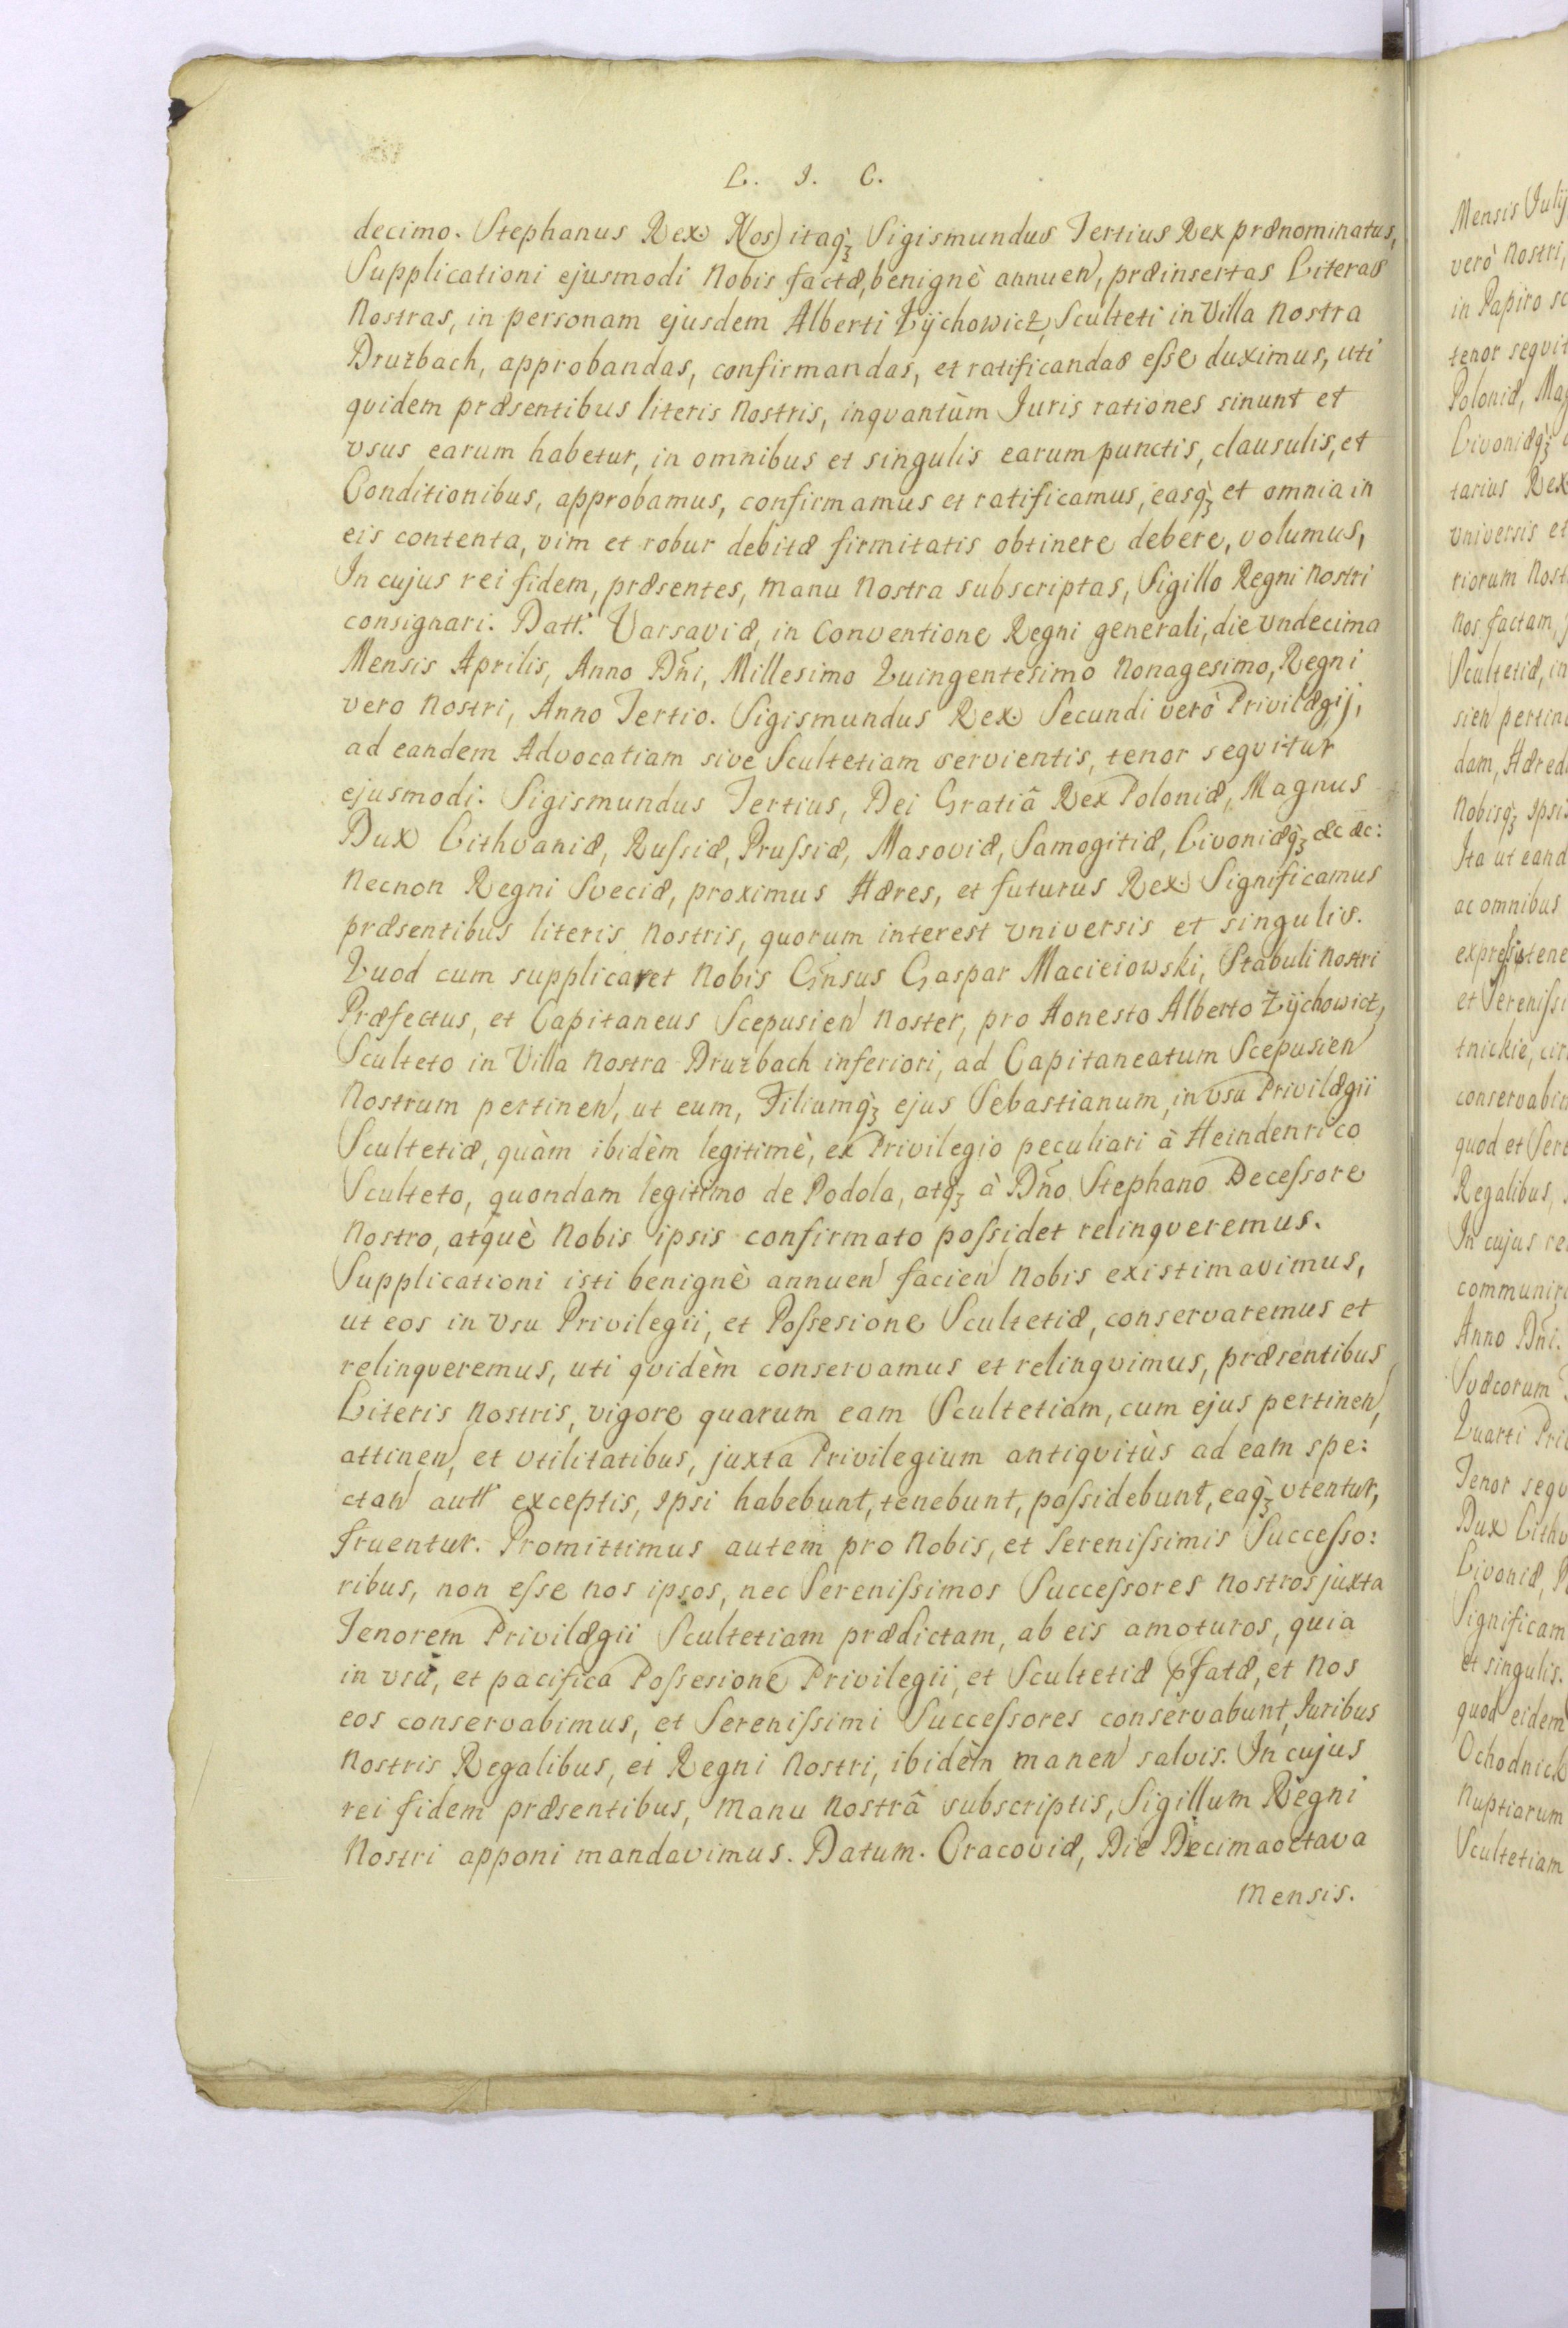 L. I. C.
decimo. Stephanus Rex. N(os) itaqꝫ Sigismundus Tertius Rex prænominatus,
Supplicationi ejusmodi Nobis factæ, benignè annuen, præinsertas Literas
Nostras, in personam ejusdem Alberti Żÿchowicz, Sculteti in Villa Nostra
Druzbach, approbandas, confirmandas, et ratificandas eſse duximus, uti
qvidem præsentibus literis Nostris, inqvantùm Juris rationes sinunt et
vsus earum habetur, in omnibus et singulis earum punctis, clausulis, et
Conditionibus, approbamus, confirmamus et ratificamus, easqꝫ et omnia in
eis contenta, vim et robur debitæ firmitatis obtinere debere, volumus,
In cujus rei fidem, præsentes, manu Nostra subscriptas, Sigillo Regni Nostri
consignari. Datt. Varsaviæ, in Conventione Regni generali, die vndecima
Mensis Aprilis, Anno Dñi, Millesimo Quingentesimo Nonagesimo, Regni
vero Nostri, Anno Tertio. Sigismundus Rex. Secundi verò Privilægij,
ad eandem Advocatiam sive Scultetiam servientis, tenor seqvitur
ejusmodi. Sigismundus Tertius, Dei Gratiâ Rex Poloniæ, Magnus
Dux Lithvaniæ, Ruſsiæ, Pruſsiæ, Masoviæ, Samogitiæ, Livoniæqꝫ &c &c:
Necnon Regni Sveciæ, proximus Hæres, et futurus Rex. Significamus
præsentibus literis Nostris, quorum interest vniversis et singulis.
Quod cum supplicaret Nobis Gñsus Gaspar Macieiowski, Stabuli Nostri
Præfectus, et Capitaneus Scepusien Noster, pro Honesto Alberto Żÿchowicz,
Sculteto in Villa Nostra Druzbach inferiori, ad Capitaneatum Scepusien
Nostrum pertinen, ut eum, Filiumqꝫ ejus Sebastianum, in vsu Privilægii
Scultetiæ, quàm ibidèm legitimè, ex Privilegio peculiari à Heindenrico
Sculteto, quondam legitimo de Podola, atqꝫ à Dño Stephano Deceſsore
Nostro, atquè Nobis ipsis confirmato poſsidet relinqveremus.
Supplicationi isti benignè annuen facien Nobis existimavimus,
ut eos in vsu Privilegii, et Poſsesione Scultetiæ, conservaremus et
relinqveremus, uti qvidèm conservamus et relinqvimus, præsentibus
Literis Nostris, vigore quarum eam Scultetiam, cum ejus pertinen,
attinen, et vtilitatibus, juxta Privilegium antiqvitùs ad eam spe:
ctan autt exceptis, ipsi habebunt, tenebunt, poſsidebunt, eaqꝫ vtentur,
fruentur. Promittimus autem pro Nobis, et Sereniſsimis Succeſso:
ribus, non eſse nos ipsos, nec Sereniſsimos Succeſsores Nostros juxta
Tenorem Privilægii Scultetiam prædictam, ab eis amoturos, quia
in vsu, et pacifica Poſsesione Privilegii, et Scultetiæ pfatæ, et Nos
eos conservabimus, et Sereniſsimi Succeſsores conservabunt, Juribus
Nostris Regalibus, et Regni Nostri, ibidèm manen salvis. In cujus
rei fidem præsentibus, Manu Nostrâ subscriptis, Sigillum Regni
Nostri apponi mandavimus. Datum. Cracoviæ, Die Decimaoctava
Mensis.
Mensis Julij
verò Nostri,
in Papiro
tenor
Poloniæ,
Livoniæqꝫ
tarius Rex
vniversis et
riorum
Nos factam,
Scultetiæ, in
sien
dam,
Nobisqꝫ
Ita ut
ac omnibus
et
tnickie,
quod et
Regalibus,
In cujus
Anno Dñi.
Svæcorum
Quarti
Tenor
Dux
Livoniæ,
et singulis.
quod eidem
Nuptiarum
Scultetiam